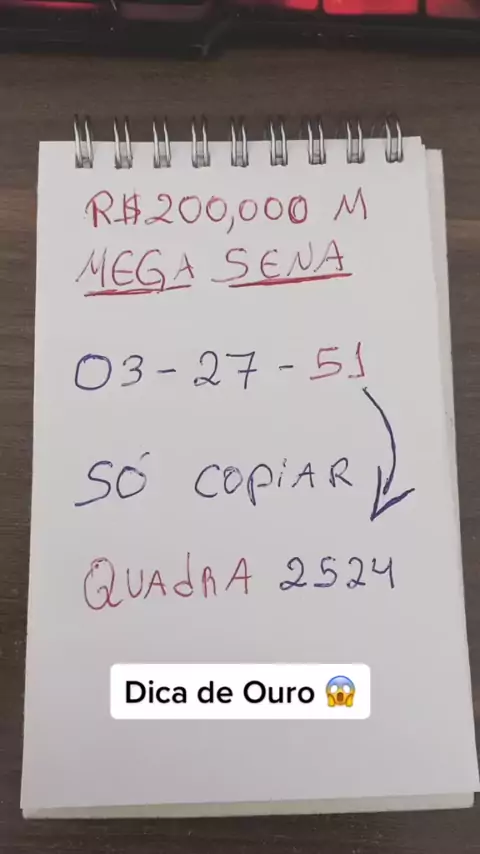 R$200,000 M
MEGA SENA
03-27-51
SÓ COPIAR
QUADRA 2524
Dica de Ouro 😱